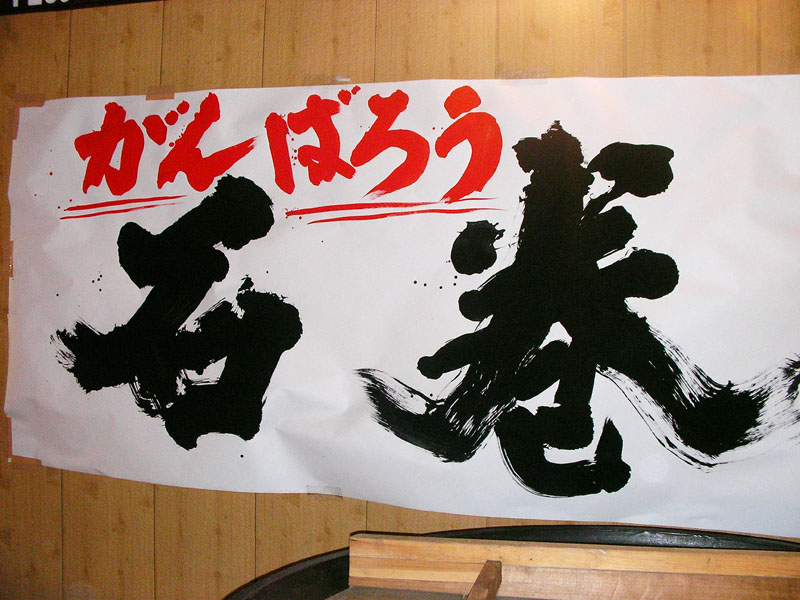 がんばろう
石巻